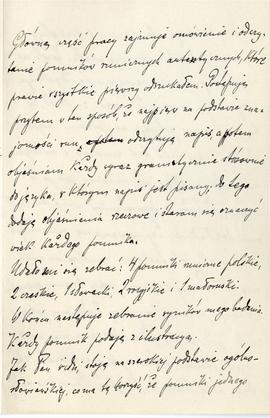 Główną część pracy zajmuje omówienie i odczy-
tanie pomników runicznych autentycznych, które
prawie wszystkie pierwszy odszukałem. Postępuję
przytem w ten sposób, że najpierw na podstawie zna-
jomości run, odczytuję napis a potem
objaśniam każdy wyraz gramatycznie stosownie
do języka, w którym napis jest pisany, do tego
dodaję objaśnienia rzeczowe i staram się oznaczyć
wiek każdego pomnika.
Udało mi się zebrać: 4 pomniki runiczne polskie,
2 czeskie, 1 słowacki, 2 rosyjskie i 1 małoruski.
W końcu następuje zebranie wyników mego badania.
Każdy pomnik podaję z ilustracją.
Jak Pan widzi, stoję na szerokiej podstawie ogólno-
słowiańskiej, co ma tę korzyść, że pomniki jednego